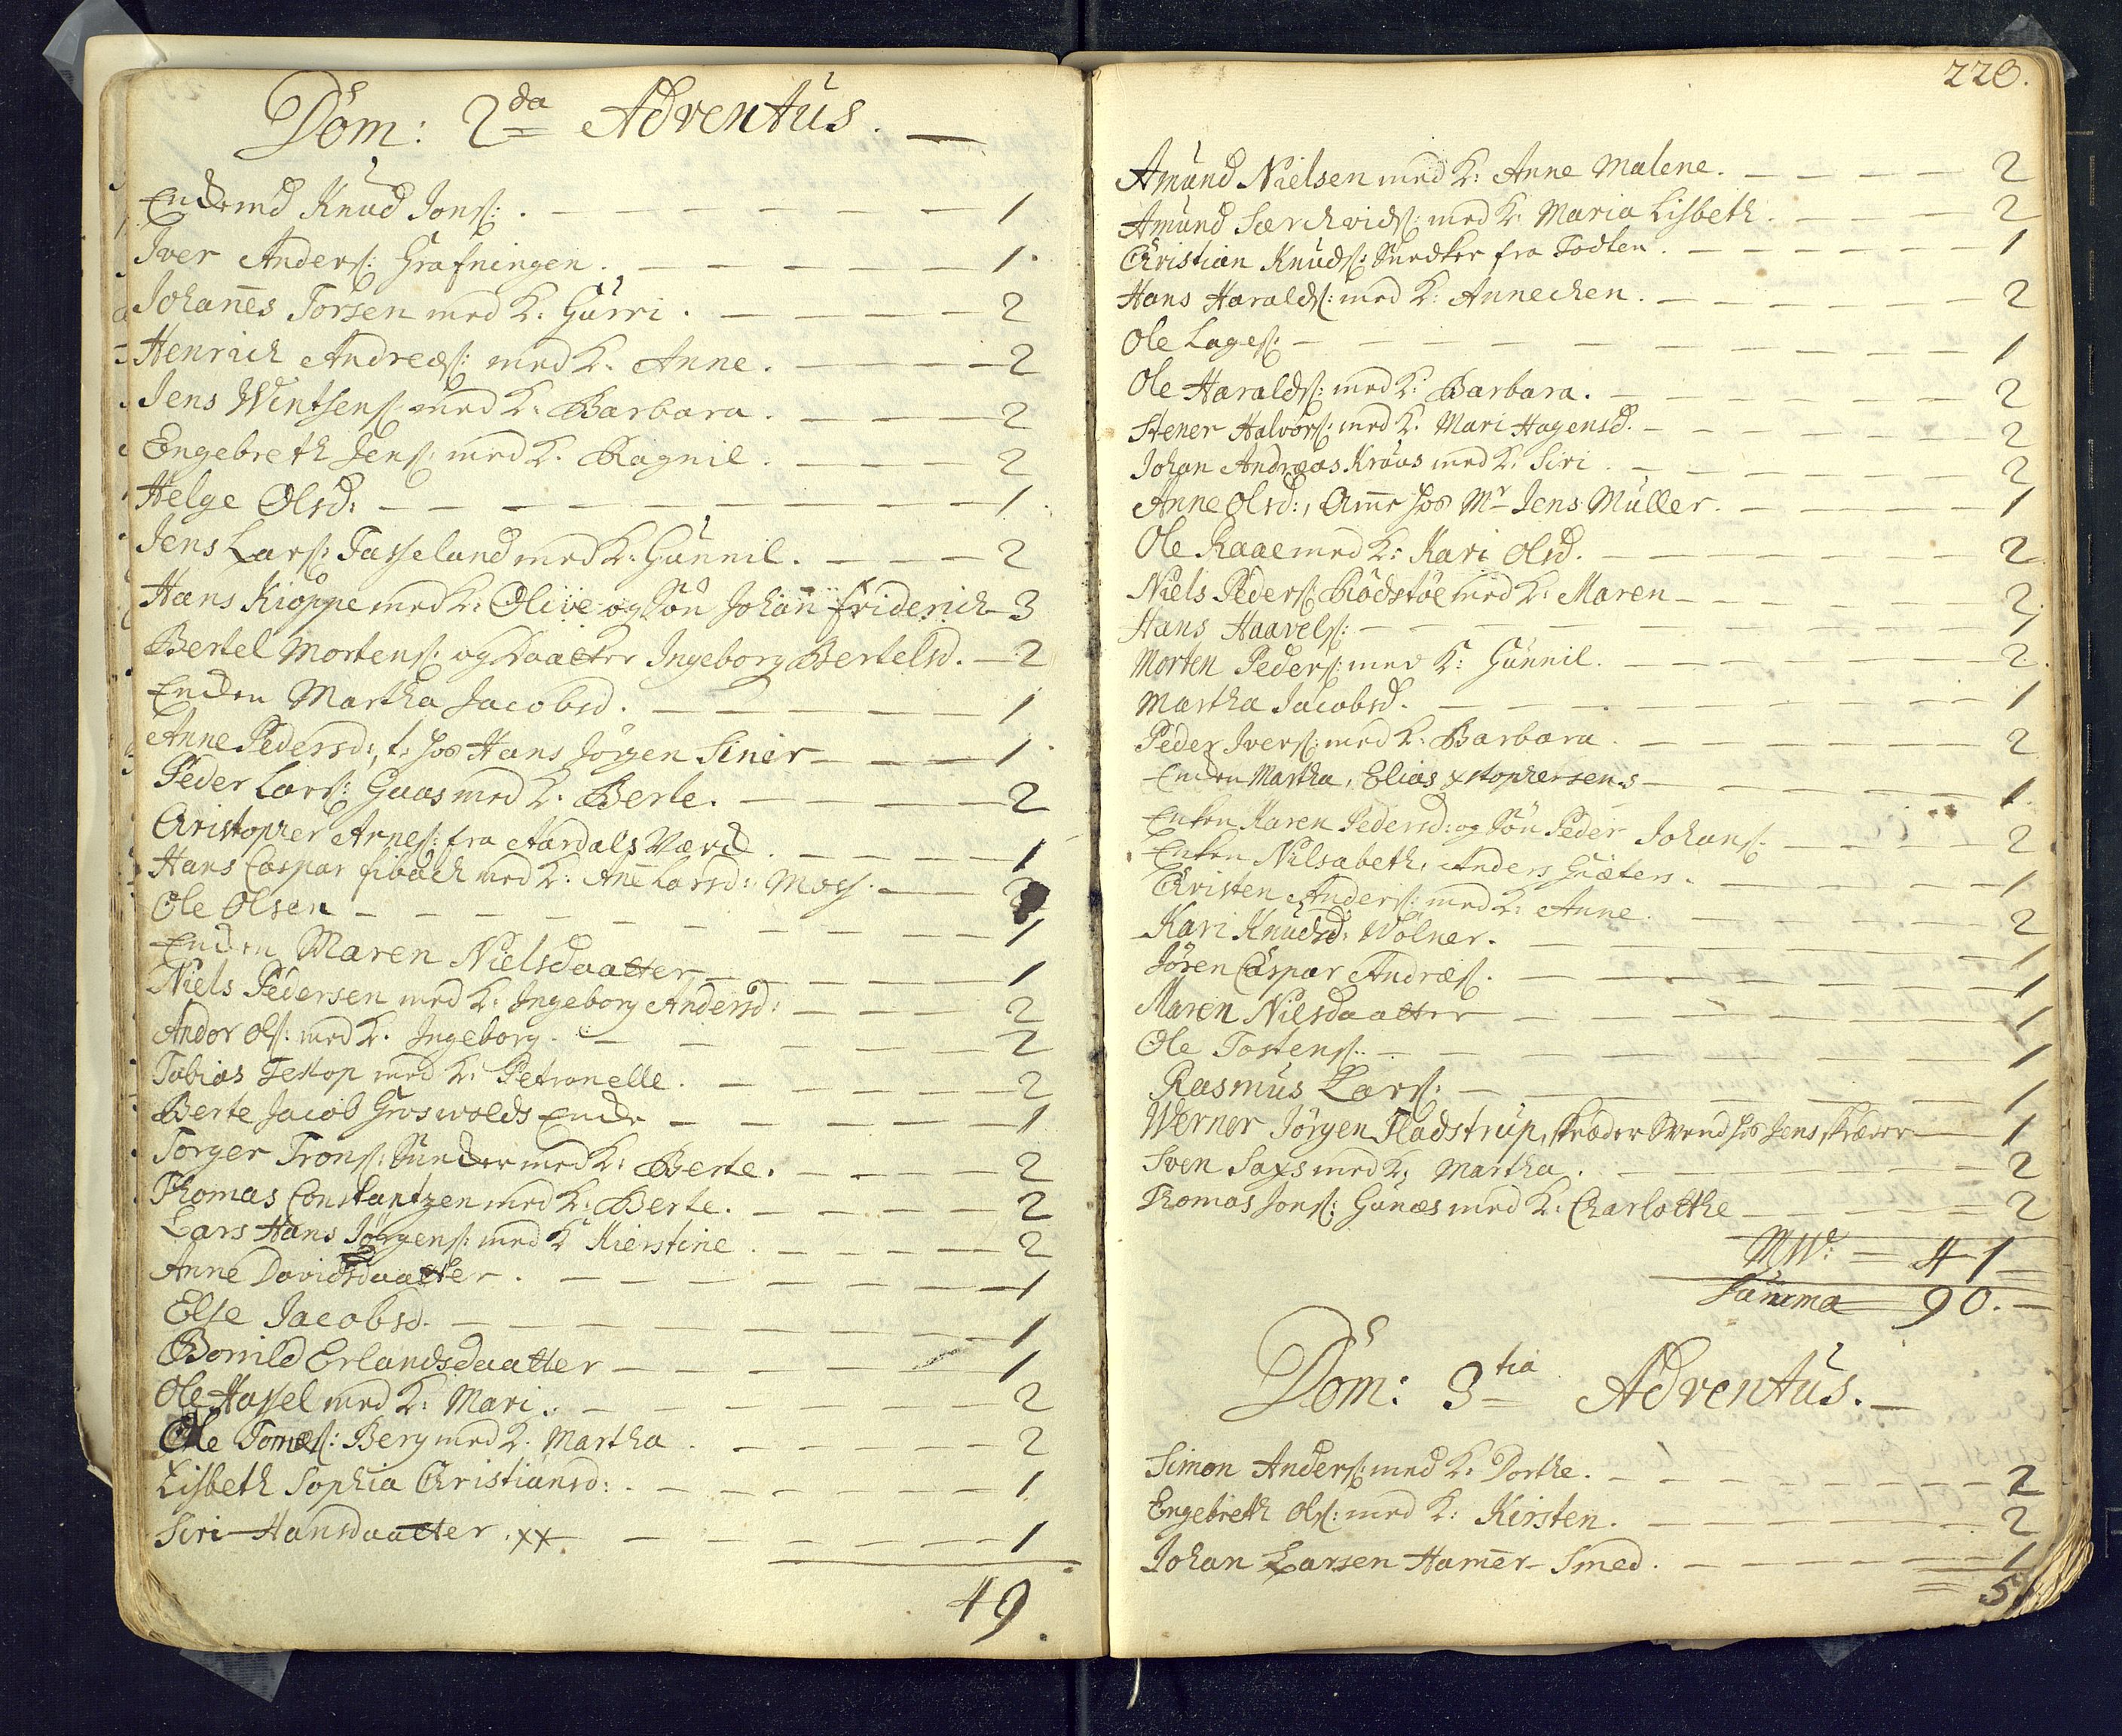 Dom: 2da Adventus.
Enckemd Knud Jons: . 1
Iver Anders: Grafningen. 1.
Johannes Torsen med K: Gurri. 2
Henrich Andreæs: med K. Anne. 2
Jens Wintsens: med K: Barbara. 2
Engebreth Jens: med K. Ragnil. 2
Helge Olsd: 1
Jens Lars: Tasseland med K: Gunnil. 2
Hans Kioppe med K: Olive og Søn Johan Friderich 3
Bertel Mortens: og Daatter Ingeborg Bertelsd. 2
Encken Martha Jacobsd. 1
Anne Pedersd:, t. hos Hans Jörgen Siner 1
Peder Lars: Gaas med K. Berte. 2
Christopher Arnes: fra Aardals Værck. 1
Hans Caspar Fibach med K: Anne Larsd: Moss. 2
Ole Olsen 1
Encken Maren Nielsdaatter 1
Niels Pedersen med K: Ingeborg Andersd: 2
Andor Ols: med K. Ingeborg. 2
Tobias Testop med K: Petronelle. 2
Berte Jacob Groswolds Encke 1
Torger Trons: Snecker med K: Berte. 2
Thomas Constantzen med K: Berte. 2
Lars Hans Jörgens: med K Kierstine. 2
Anne Davidsdaatter. 1
Else Jacobsd. 1
Bornild Erlandsdaatter 1
Ole Hassel med K: Mari. 2
Ole Tomes: Berg med K. Martha. 2
Lisbeth Sophia Christiansd: 1
Siri Hansdaatter. xx. 1
49.
228.
Amund Nielsen med K: Anne Malene. 2
Amund Særchvids: med K: Maria Lisbeth. 2
Christian Knuds: Snedker fra Todten. 1
Hans Haralds: med K: Annechen. 2
Ole Lages: 1
Ole Haralds: med K: Barbara. 2
Stener Halvors: med K. Mari Hagensd. 2
Johan Andreas Kraus med K: Siri. 2
Anne Olsd:, Amme hos Mr Jens Müller. 1
Ole Raae med K: Kari Olsd. 2
Niels Peders: Rödstöe med K: Maren 2
Hans Haavels: 1
Morten Peders: med K: Gunnil. 2.
Martha Jacobsd. 1
Peder Ivers: med K: Barbara. 2
Encken Martha, Elias Xstophersens 1
Enken Karen Pedersd: og Søn Peder Johans: 2
Enken Nilsabeth, Anders Gräters. 1
Christen Anders: med K: Anne. 2
Kari Knudsd: Wolner. 1
Jören Caspar Andræs. 1
Maren Nilsdaatter 1
Ole Tostens: 1
Rasmus Lars: 1
Werner Jörgen Fladstrup, skræder Svend hos Jens skræder 1
Sven Saxs med K: Martha. 2
Thomas Jons: Gunæs med K: Charlotthe 2
= 41
Summa 90.
Dom: 3tia Adventus.
Simon Anders: med K: Dorthe. 2
Engebreth Ols: med K: Kirsten. 2
Johan Larsen Hamer-Smed. 1
5